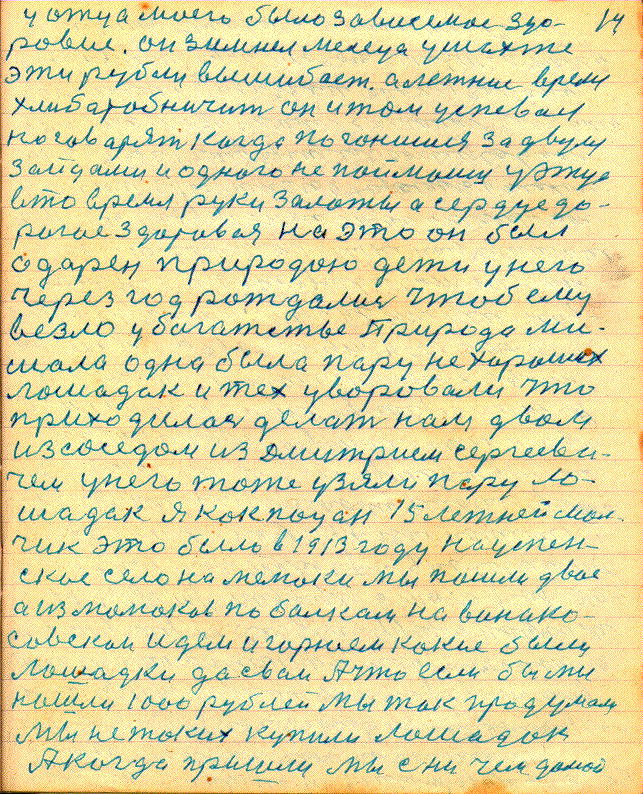 у отца моего было зависемое здо- 14
ровие. он зимнеи месеца у шахте
эти рубли вышибает. а летние время
хлибаробничит он и том успевал
но говарят когда погонишся за двумя
зайцами и одного не поймаиш у отца
в то время руки залоты а сердце до-
рогое здоровая на это он был
одарен природою дети у него
через год рождалися чтоб ему
везло у багатстве природа ми-
шала одна была пару не хароших
лошадак и тех уворовали что
приходилася делат нам двом
из соседом из Дмитрием Сергееви-
чем у него тоже узяли пару ло-
шадак я кок поцан 15 летней мол-
чик это было в 1913 году на успен-
ское село на мемоки мы пошли двое
а из момоков по балкам на ванако-
совской идем и горюем какие были
лошадки да свал А что если бы ми
нашли 1000 рублей мы так продумали
мы не таких купили лошадок
А когда пришли мы с ни чем домой